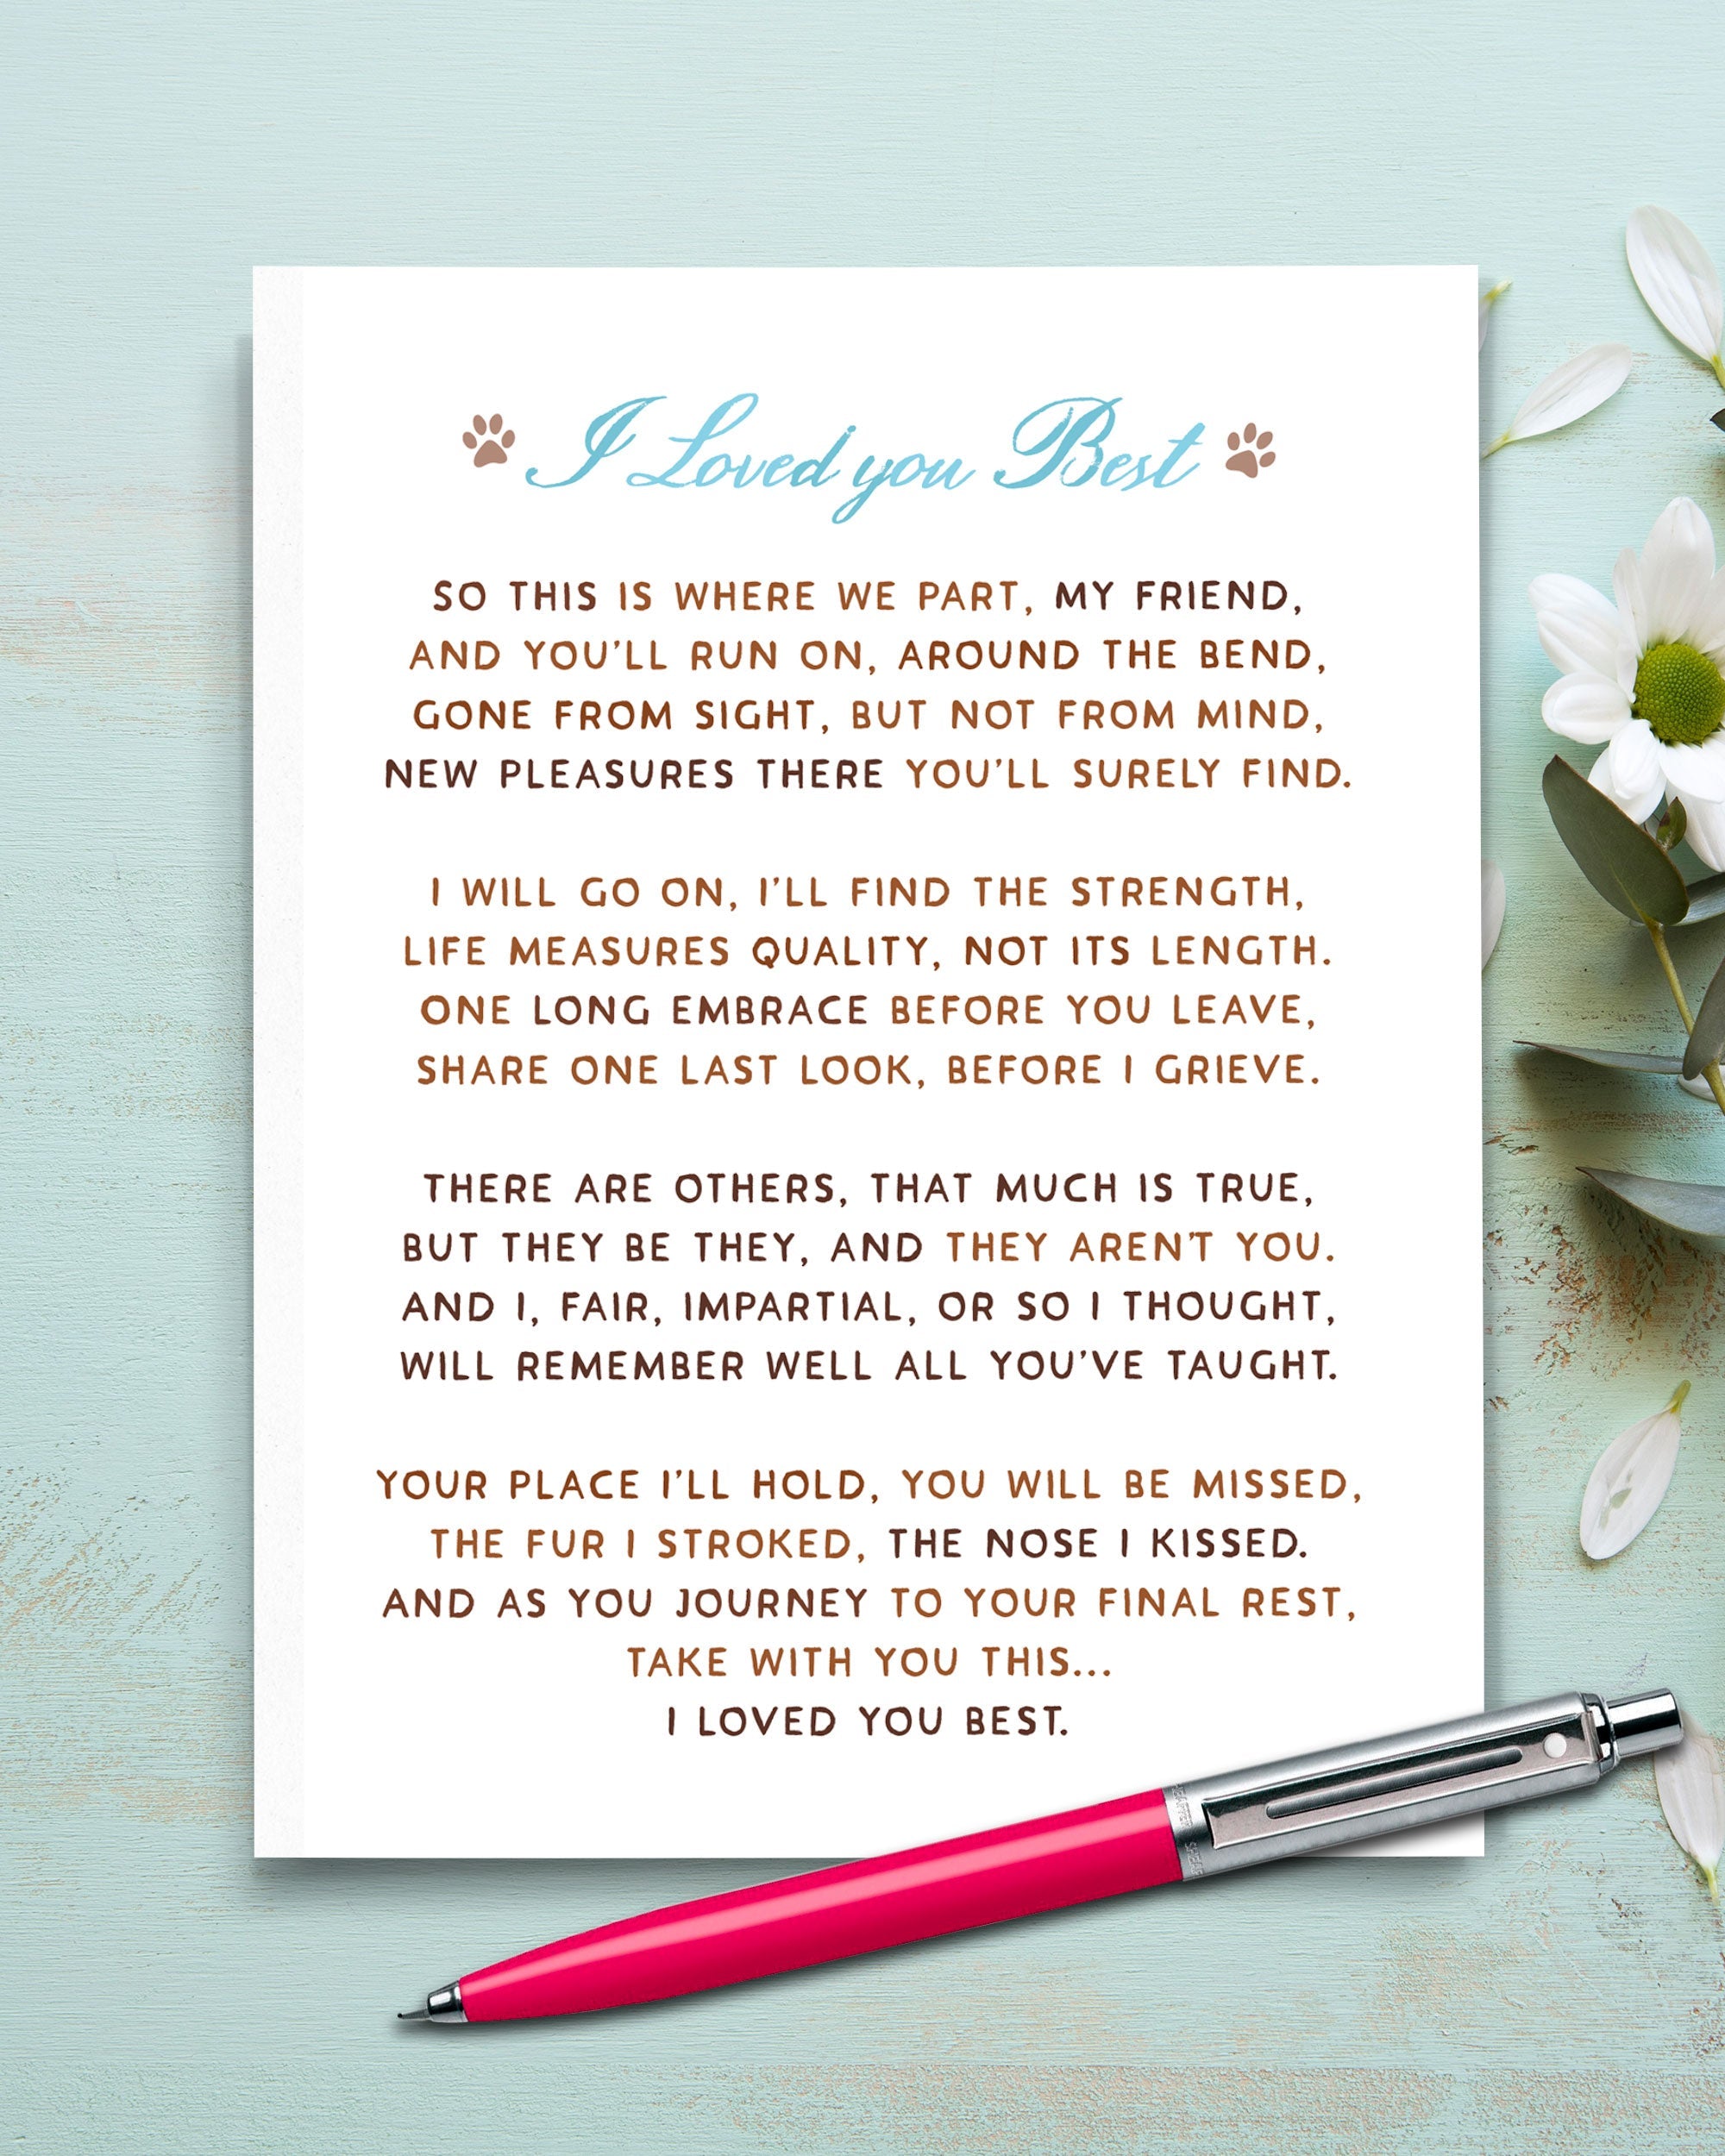 I Loved you Best
SO THIS IS WHERE WE PART, MY FRIEND,
AND YOU'LL RUN ON, AROUND THE BEND,
GONE FROM SIGHT, BUT NOT FROM MIND,
NEW PLEASURES THERE YOU'LL SURELY FIND.
I WILL GO ON, I'LL FIND THE STRENGTH,
LIFE MEASURES QUALITY, NOT ITS LENGTH.
ONE LONG EMBRACE BEFORE YOU LEAVE,
SHARE ONE LAST LOOK, BEFORE I GRIEVE.
THERE ARE OTHERS, THAT MUCH IS TRUE,
BUT THEY BE THEY, AND THEY AREN'T YOU.
AND I, FAIR, IMPARTIAL, OR SO I THOUGHT,
WILL REMEMBER WELL ALL YOU'VE TAUGHT.
YOUR PLACE I'LL HOLD, YOU WILL BE MISSED,
THE FUR I STROKED, THE NOSE I KISSED.
AND AS YOU JOURNEY TO YOUR FINAL REST,
TAKE WITH YOU THIS...
I LOVED YOU BEST.